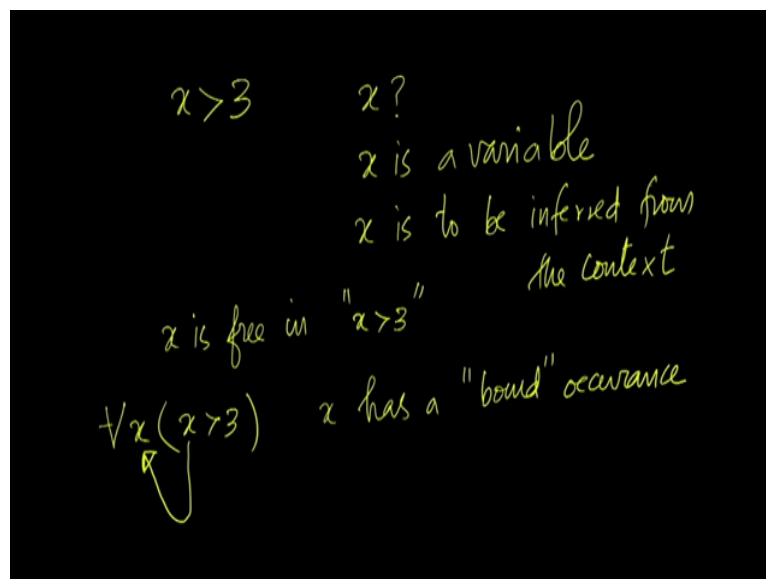 x>3 x?
x is a variable
x is to be inferred from
the context
x is free in "x>3"
∀x(x>3) x has a "bound" occurance